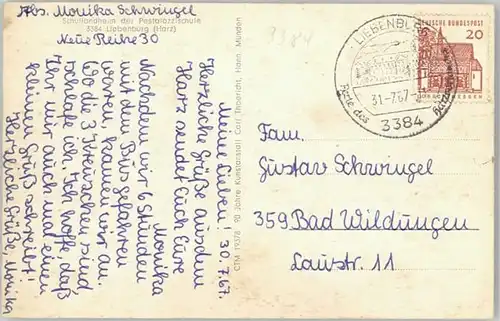 Abs. Monika Schwingel
Schullandheim der Pestalozzischule
3384 Liebenburg (Harz)
Neue Reihe 30
3384
Meine Lieben! 30.7.67.
Herzliche Grüße aus dem
Harz sendet Euch Eure
Monika
Nachdem wir 6 Stunden
mit dem Bus gefahren
waren, kamen wir an.
Wo die 3 Kreuzchen sind
schlafe ich. Ich hoffe, daß
Ihr mir auch mal einen
kleinen Gruß schreibt!
Herzliche Grüße, Monika
CTM 19378 90 Jahre Kunstanstalt Carl Thoericht, Hann. Münden
LIEBENBURG
31.-7.67
Perle des
3384
DEUTSCHE BUNDESPOST
20
Fam.
Gustav Schwingel
359 Bad Wildungen
Laustr. 11